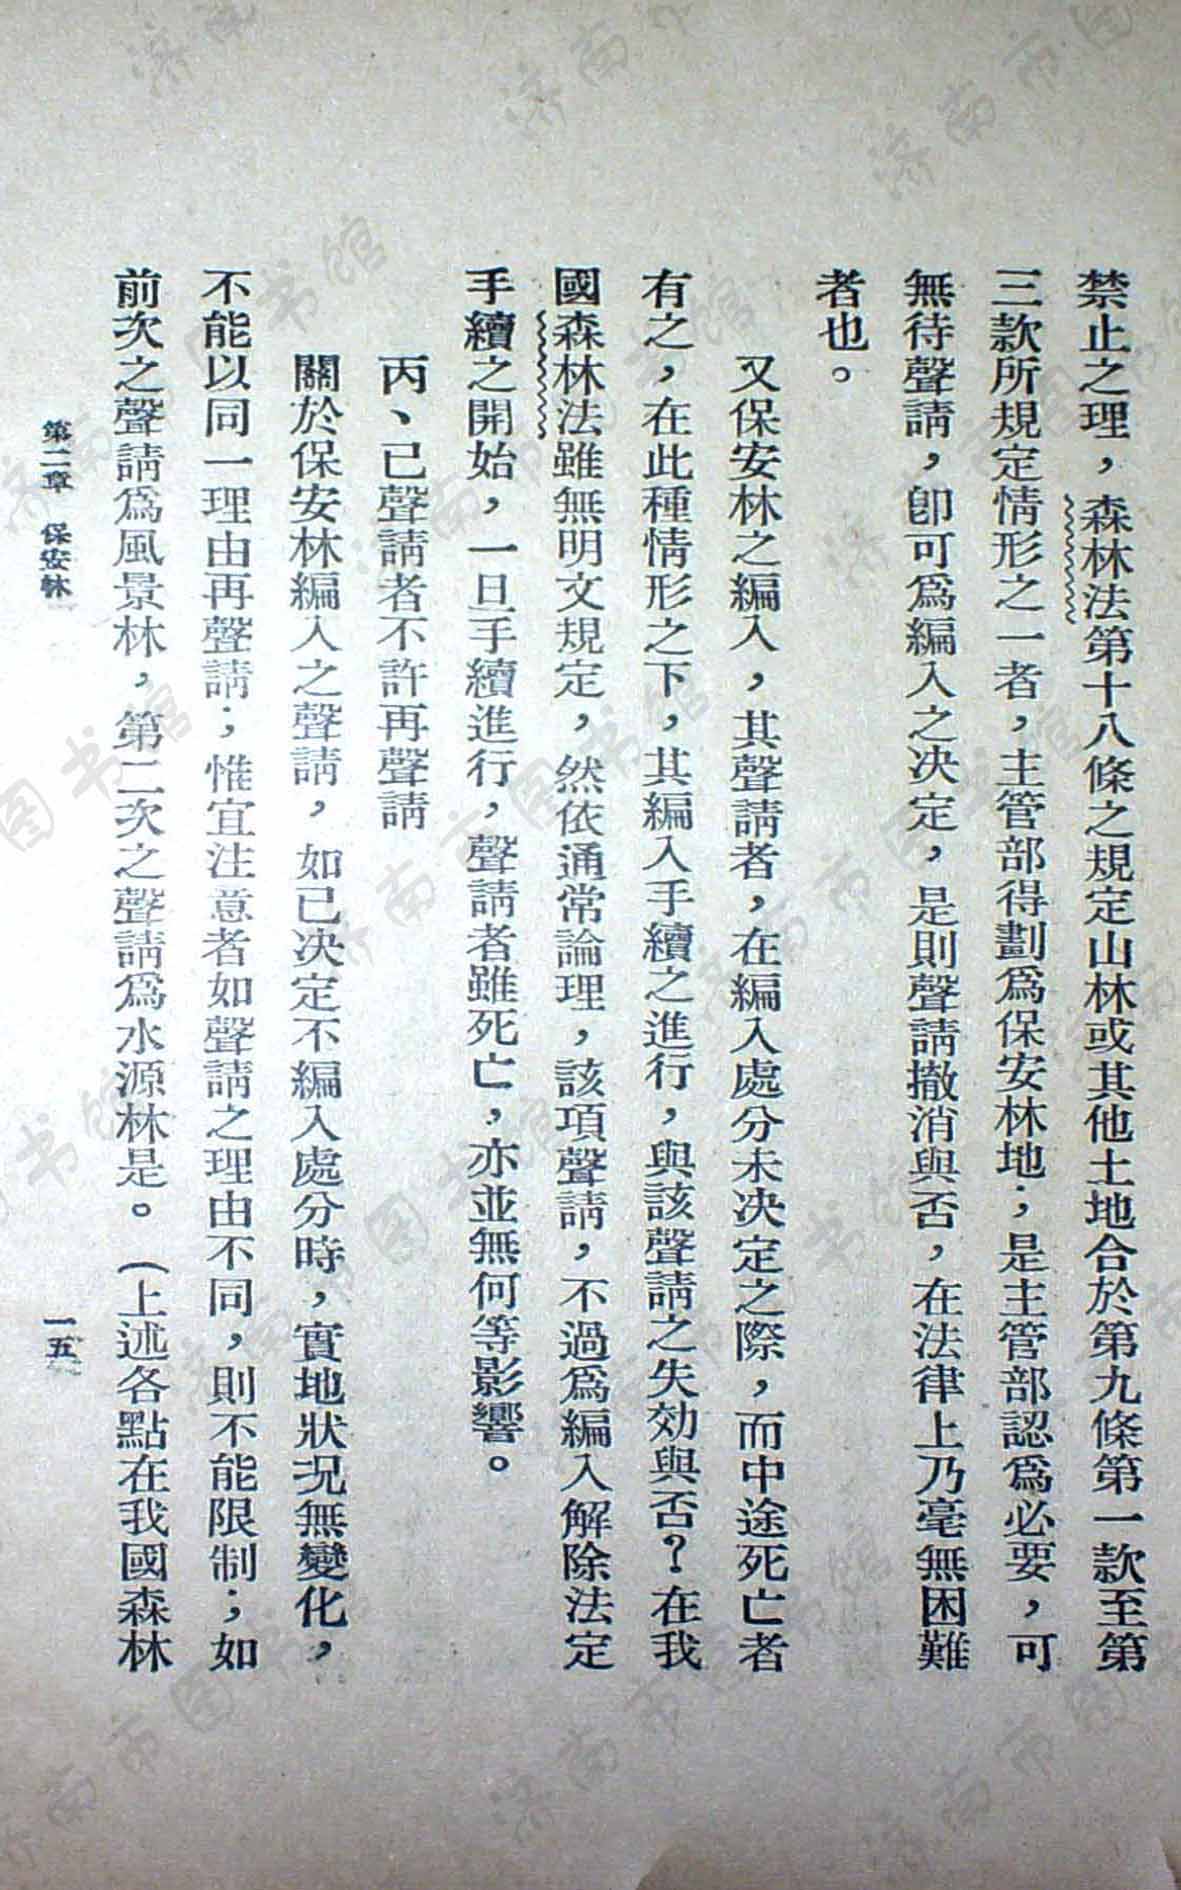 禁止之理，森林法第十八條之規定山林或其他土地合於第九條第一款至第
三款所規定情形之一者，主管部得劃爲保安林地；是主管部認爲必要，可
無待聲請，卽可爲編入之决定，是則聲請撤消與否，在法律上乃毫無困難
者也。
又保安林之編入，其聲請者，在編入處分未决定之際，而中途死亡者
有之，在此種情形之下，其編入手續之進行，與該聲請之失効與否？在我
國森林法雖無明文規定，然依通常論理，該項聲請，不過爲編入解除法定
手續之開始，一旦手續進行，聲請者雖死亡，亦並無何等影響。
丙、已聲請者不許再聲請
關於保安林編入之聲請，如已决定不編入處分時，實地狀况無變化，
不能以同一理由再聲請；惟宜注意者如聲請之理由不同，則不能限制；如
前次之聲請爲風景林，第二次之聲請爲水源林是。（上述各點在我國森林
第二章 保安林
一五
济南市图书馆